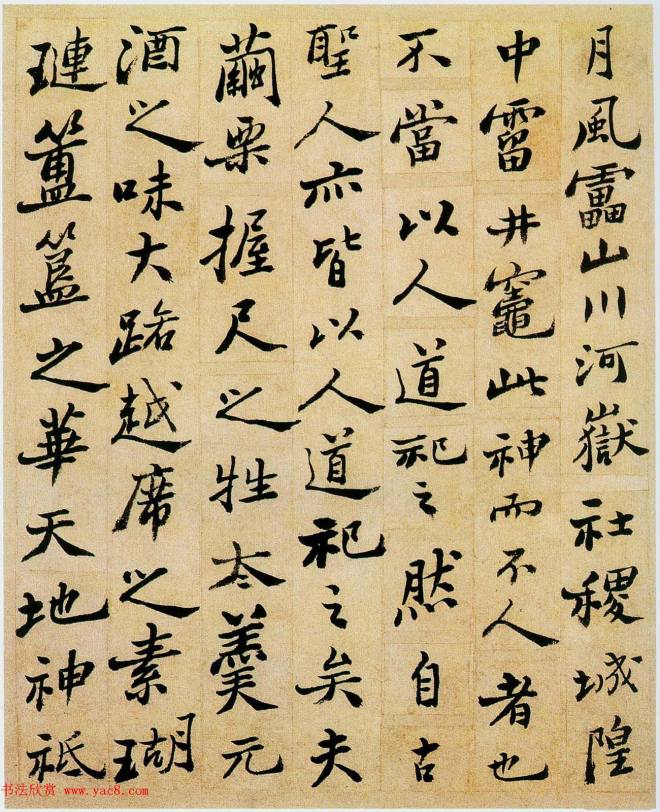 月風靁山川河嶽社稷城隍
中霤井竈此神而不人者也
不當以人道祀之然自古
聖人亦皆以人道祀之矣夫
繭栗握尺之牲太羹元
酒之味大路越席之素瑚
璉簠簋之華天地神祇
书法欣赏 www.yac8.com